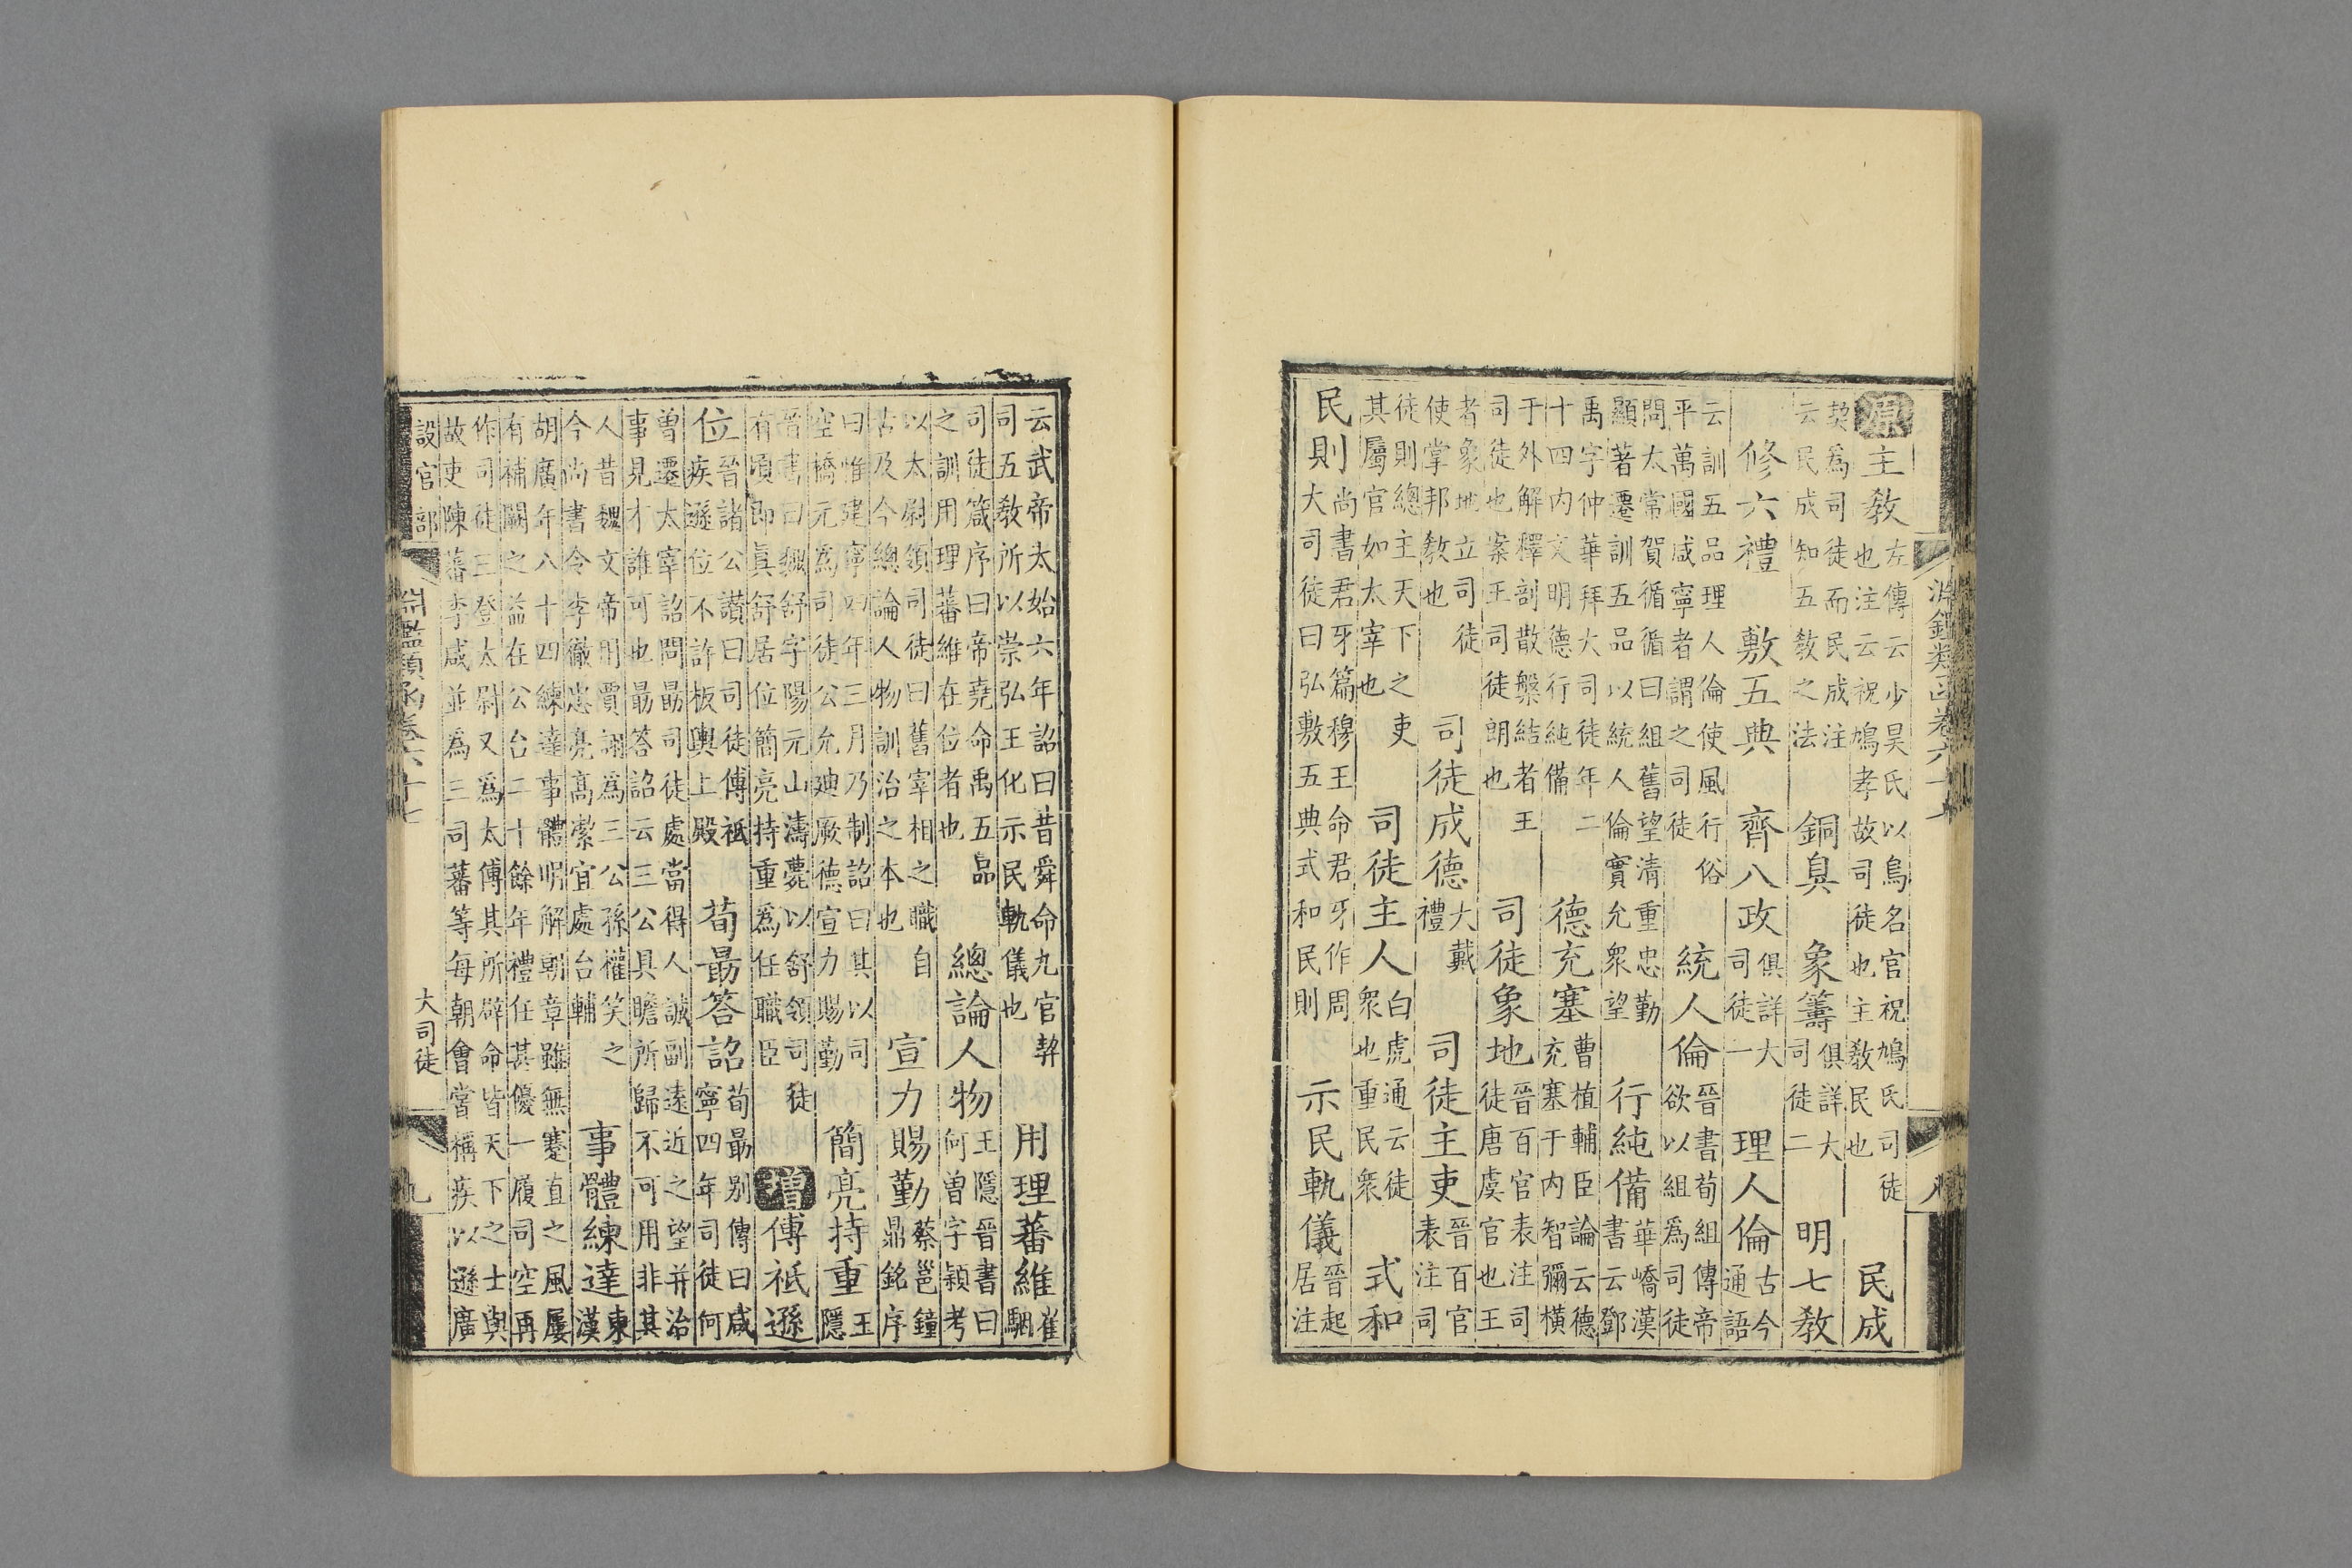 淵鑑類函卷六十七 八
原主教左傳云少昊氏以鳥名官祝鳩氏司徒也注云祝鳩孝故司徒也主教民也 民成
契爲司徒而民成注云民成知五教之法 銅臭 象籌俱詳大司徒二 明七教
修六禮 敷五典 齊八政俱詳大司徒一 理人倫古今通語
云訓五品理人倫使風行俗平萬國咸寧者謂之司徒 統人倫晉書荀組傳帝欲以組爲司徒
問太常賀循循曰組舊望清重忠勤顯著遷訓五品以統人倫實允衆望 行純備華嶠漢書云鄧
禹字仲華拜大司徒年二十四内文明德行純備 德充塞曹植輔臣論云德充塞于内智彌橫
于外解釋剖散槃結者王司徒也案王司徒朗也 司徒象地晉百官表注司徒唐虞官也王
者象地立司徒使掌邦教也 司徒成德大戴禮 司徒主吏晉百官表注司
徒則總主天下之吏其屬官如太宰也 司徒主人白虎通云徒衆也重民衆 式和
民則尚書君牙篇穆王命君牙作周大司徒曰弘敷五典式和民則 示民軌儀晉起居注
云武帝太始六年詔曰昔舜命九官契司五教所以崇弘王化示民軌儀也 用理蕃維崔駰
司徒箴序曰帝堯命禹五品之訓用理蕃維在位者也 總論人物王隱晉書曰何曽字穎考
以太尉領司徒曰舊宰相之職自古及今總論人物訓治之本也 宣力賜勤蔡邕鐘鼎銘序
曰惟建寧四年三月乃制詔曰其以司空橋元爲司徒公允廸厥德宣力賜勤 簡亮持重王隱
晉書曰魏舒字陽元山濤薨以舒領司徒有頃即真舒居位簡亮持重爲任職臣 增傅祗遜
位晉諸公讃曰司徒傅祗疾遜位不許板輿上殿 荀勗答詔荀勗别傳曰咸寧四年司徒何
曽遷太宰詔問勗司徒處當得人誠副遠近之望并治事見才誰可也勗答詔云三公具瞻所歸不可用非其
人昔魏文帝用賈詡爲三公孫權笑之今尚書令李徹忠亮高潔宜處台輔 事體練達東漢
胡廣年八十四練達事體明解朝章雖無蹇直之風屢有補闕之益在公台二十餘年禮任甚優一履司空再
作司徒三登太尉又爲太傅其所辟命皆天下之士與故吏陳蕃李咸並爲三司蕃等每朝會常稱疾以遜廣
設官部 淵鑑類函卷六十七 大司徒 九